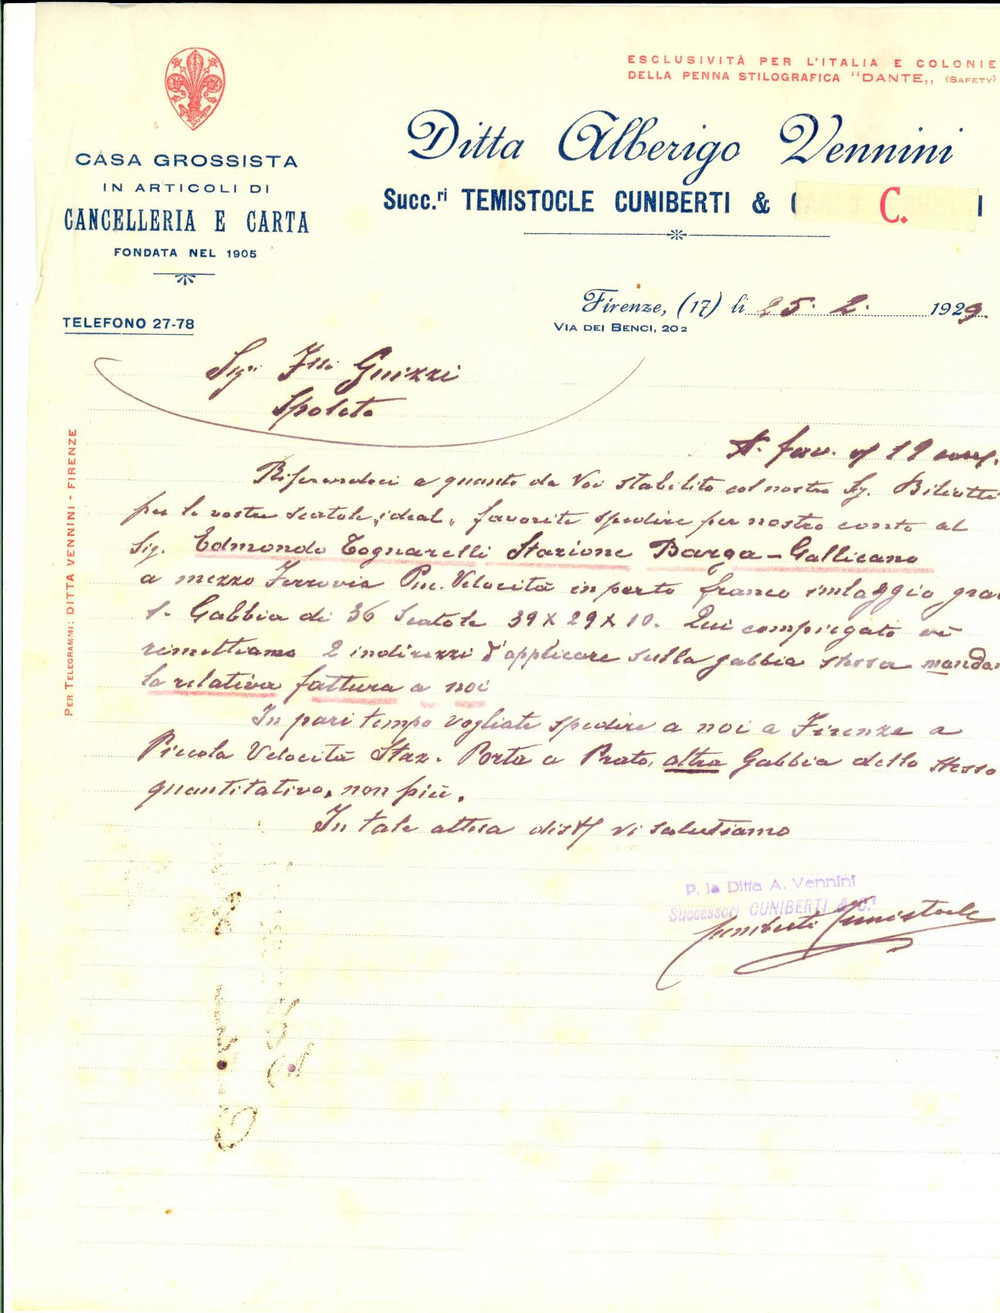 ESCLUSIVITÀ PER L'ITALIA E COLONIE
DELLA PENNA STILOGRAFICA "DANTE„ (SAFETY)
CASA GROSSISTA
IN ARTICOLI DI
CANCELLERIA E CARTA
FONDATA NEL 1905
TELEFONO 27-78
Ditta Alberigo Vennini
Succ.ri TEMISTOCLE CUNIBERTI & C.
Firenze, (17) lì 25. 2. 1929.
VIA DEI BENCI, 202
Sigri Flli Guizzi
Spoleto
PER TELEGRAMMI: DITTA VENNINI - FIRENZE
fav. 19
Riferendoci a quanto da Voi stabilito col nostro Sig. Biliotti
per le vostre scatole „ideal„ favorite spedire per nostro conto al
Sig. Edmondo Tognarelli Stazione Barga-Gallicano
a mezzo Ferrovia Pic. Velocità in porto franco imballaggio gra
1. Gabbia di 36 Scatole 39x29x10. Qui compiegato vi
rimettiamo 2 indirizzi d'applicare sulla gabbia stessa manda
la relativa fattura a noi
In pari tempo vogliate spedire a noi a Firenze a
Piccola Velocità Staz. Porta a Prato, altra Gabbia dello stesso
quantitativo, non più.
In tale attesa dist/ vi salutiamo
p. la Ditta A. Vennini
Successori CUNIBERTI & C.i
Cuniberti Temistocle